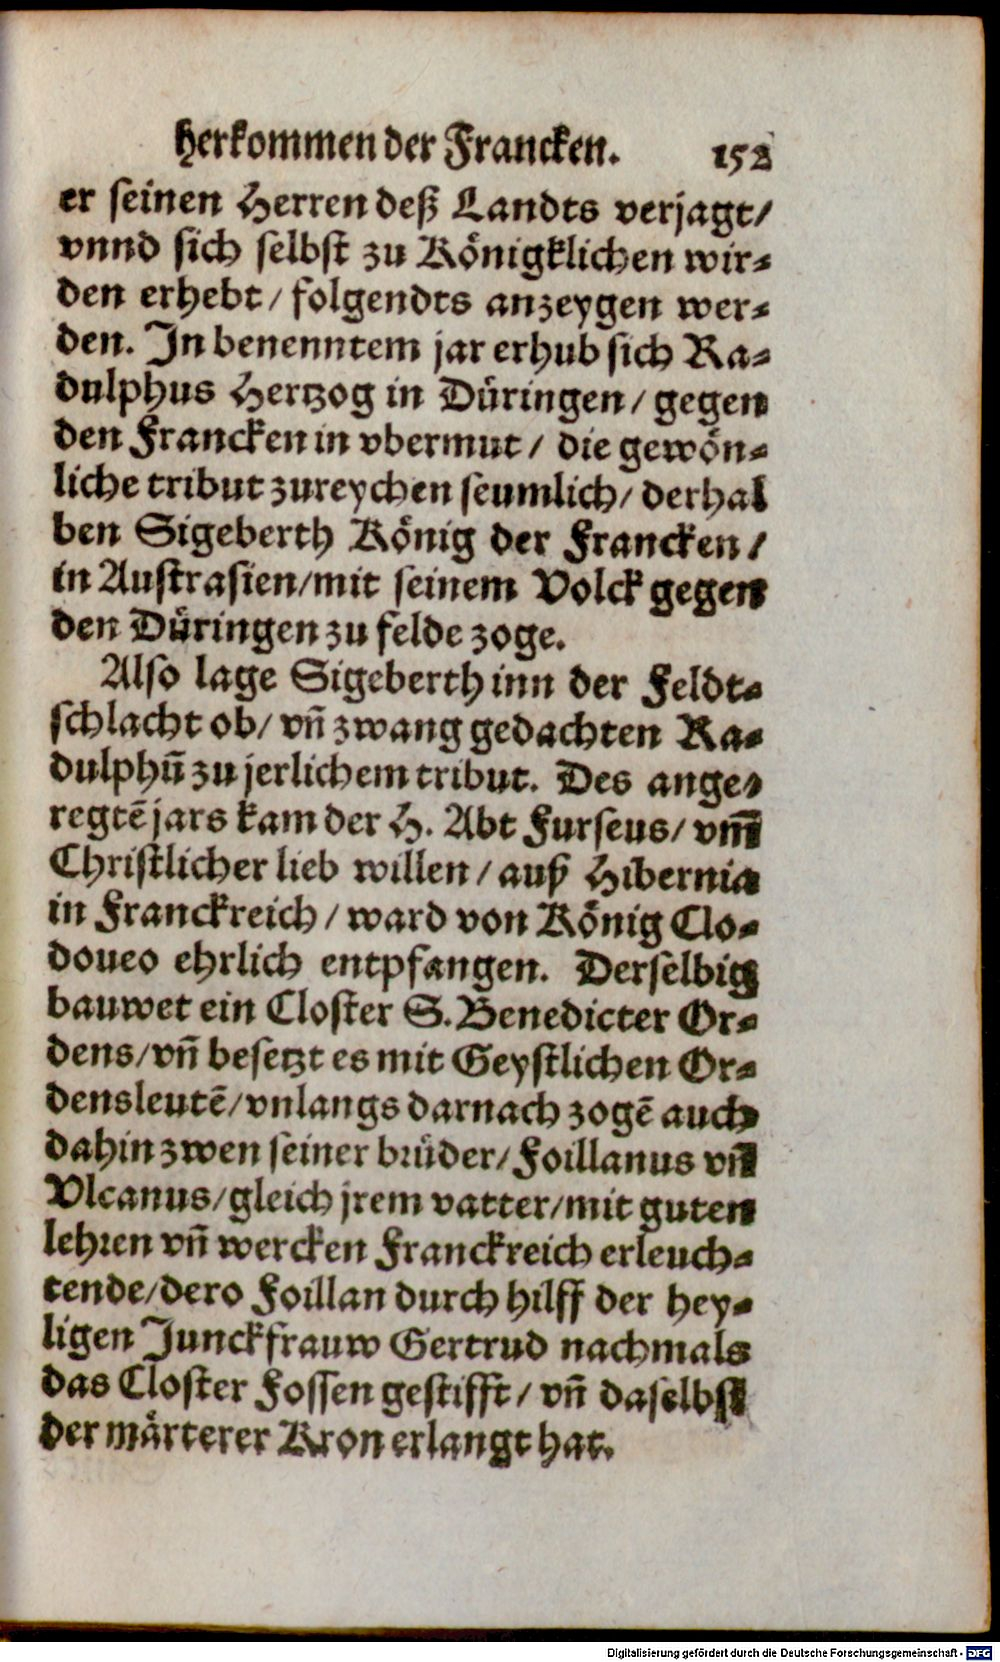 herkommen der Francken. 152
er seinen Herren deß Landts verjagt/
vnnd sich selbst zu Königklichen wir⸗
den erhebt/ folgendts anzeygen wer⸗
den. In benenntem jar erhub sich Ra⸗
dulphus Hertzog in Düringen/ gegen
den Francken in vbermut/ die gewön⸗
liche tribut zureychen seumlich/ derhal
ben Sigeberth König der Francken/
in Austrasien/ mit seinem Volck gegen
den Düringen zu felde zoge.
Also lage Sigeberth inn der Feldt⸗
schlacht ob/ vn̄ zwang gedachten Ra⸗
dulphū zu jerlichem tribut. Des ange⸗
regtē jars kam der H. Abt Furseus/ vm̄
Christlicher lieb willen/ auß Hibernia
in Franckreich/ ward von König Clo⸗
doueo ehrlich entpfangen. Derselbig
bauwet ein Closter S. Benedicter Or⸗
dens/ vn̄ besetzt es mit Geystlichen Or⸗
densleutē/ vnlangs darnach zogē auch
dahin zwen seiner brüder/ Foillanus vn̄
Vlcanus/ gleich jrem vatter/ mit guten
lehren vn̄ wercken Franckreich erleuch⸗
tende/ dero Foillan durch hilff der hey⸗
ligen Junckfrauw Gertrud nachmals
das Closter Fossen gestifft/ vn̄ daselbst
der märterer Kron erlangt hat.
Digitalisierung gefördert durch die Deutsche Forschungsgemeinschaft - DFG